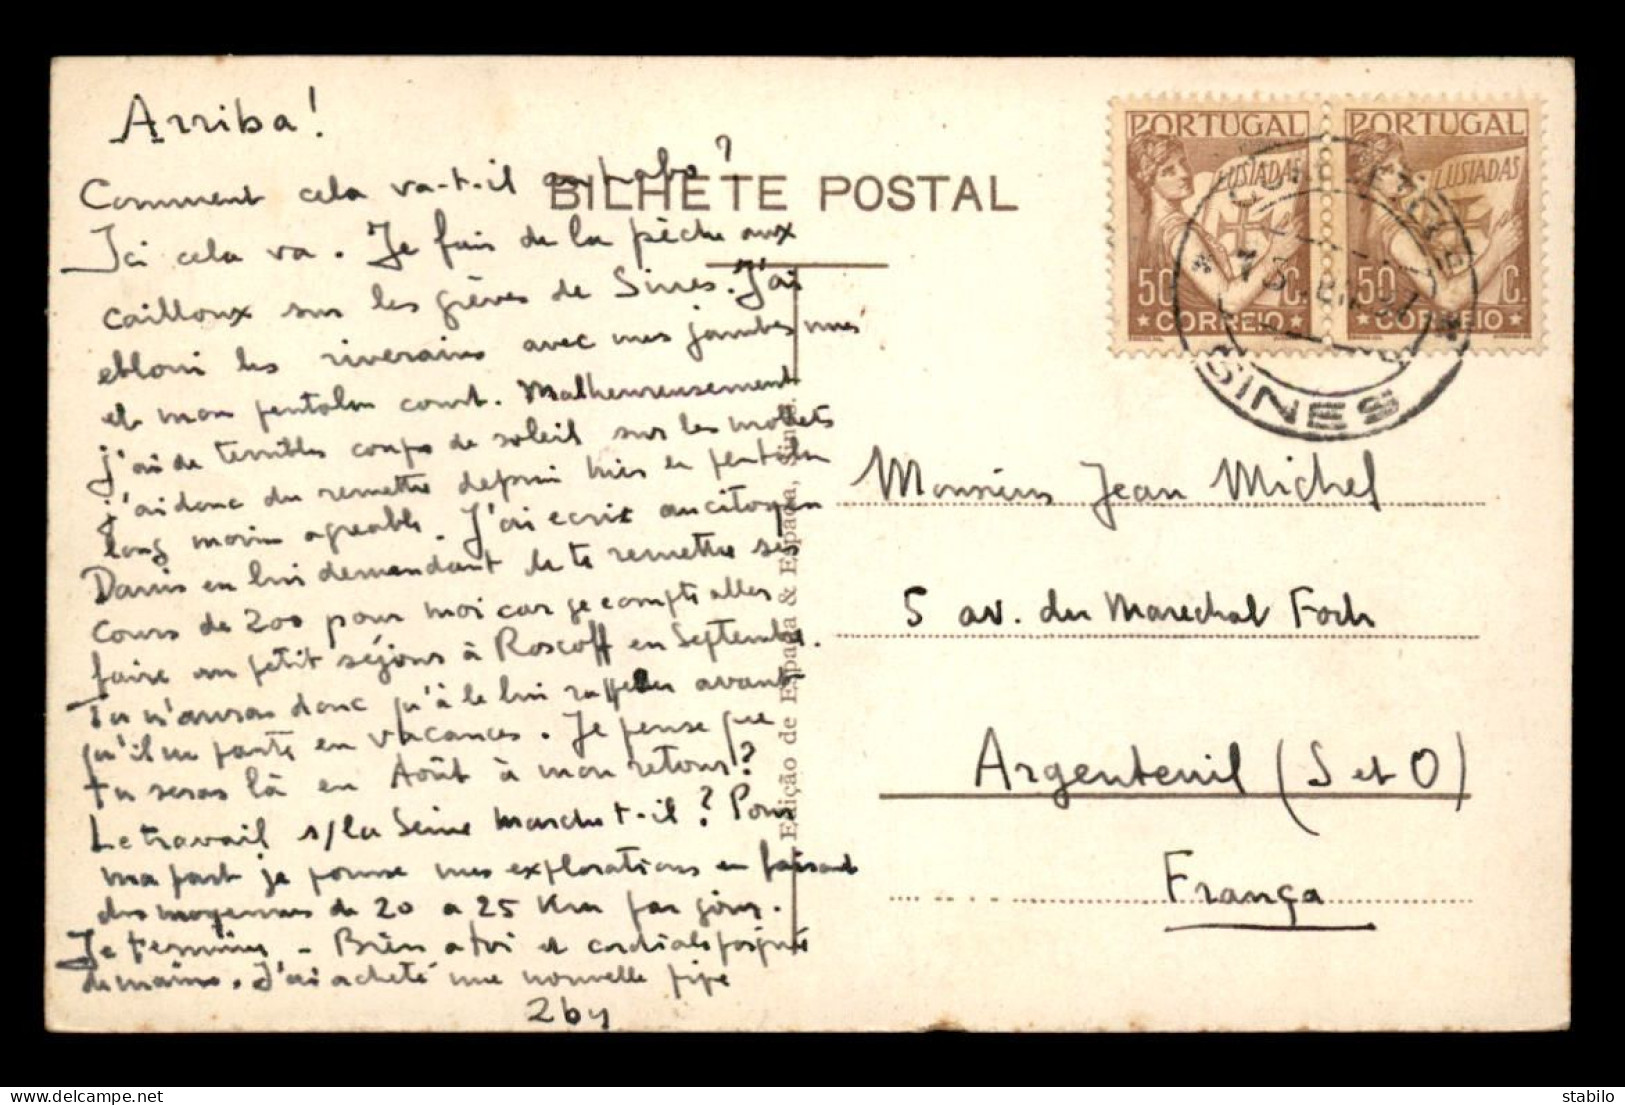 Arriba!
Comment cela va-t-il
BILHETE POSTAL
Ici cela va. Je fais de la pèche aux
cailloux sur les grèves de Sines. J'ai
ebloui les riverains avec mes jambes nues
et mon pantalon court. Malheureusement
j'ai de terribles coups de soleil sur les mollets
j'ai donc du remettre depuis hier le pantalon
long moins agreable. J'ai ecrit au citoyen
Danis en lui demandant de te remettre ses
cours de 200 pour moi car je compte aller
faire un petit séjour à Roscoff en Septembre.
Tu n'auras donc qu'à le lui rappeler avant
qu'il ne parte en vacances. Je pense que
tu seras là en Août à mon retour?
Le travail s/la Seine marche t-il? Pour
ma part je pousse mes explorations en faisant
des moyennes de 20 a 25 Km par jour.
Je termine - Bien a toi et cordiales poignées
de mains. J'ai acheté une nouvelle pipe
Edição de Espada & Espada, Sines.
PORTUGAL
LUSIADAS
50 C.
CORREIO
PORTUGAL
LUSIADAS
50 C.
CORREIO
SINES
Monsieur Jean Michel
5 av. du Marechal Foch
Argenteuil (S et O)
França
stabilo_
www.delcampe.net